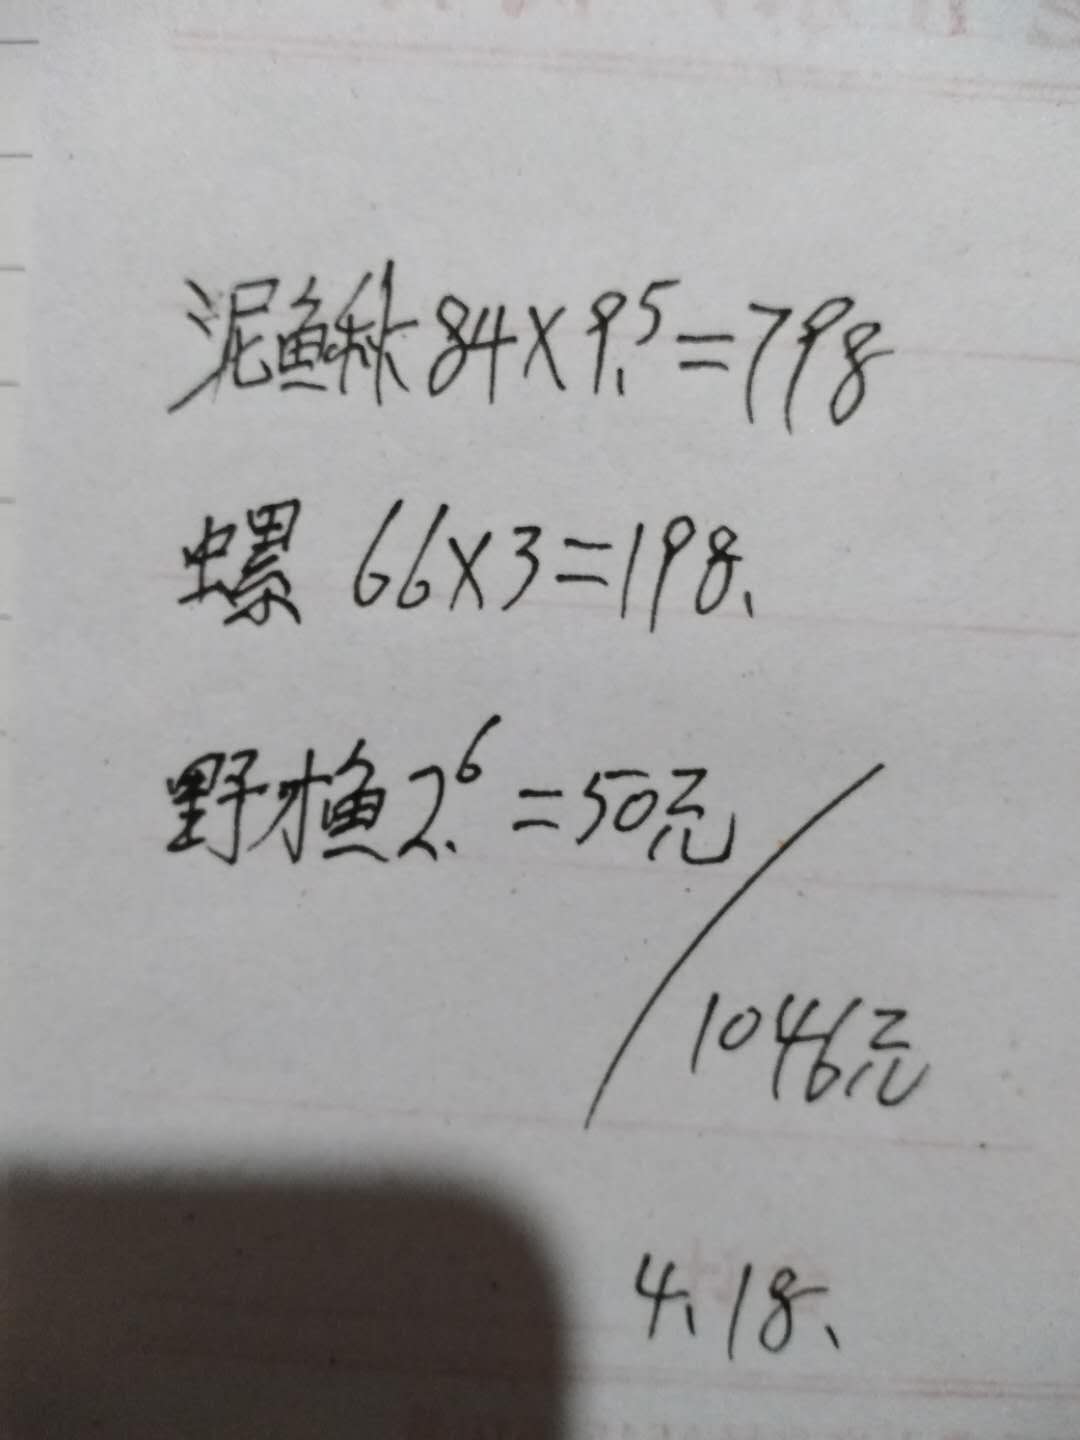 泥鳅84×9.5=798
螺 66×3=198.
野鱼2.6=50元
1046元
4.18.